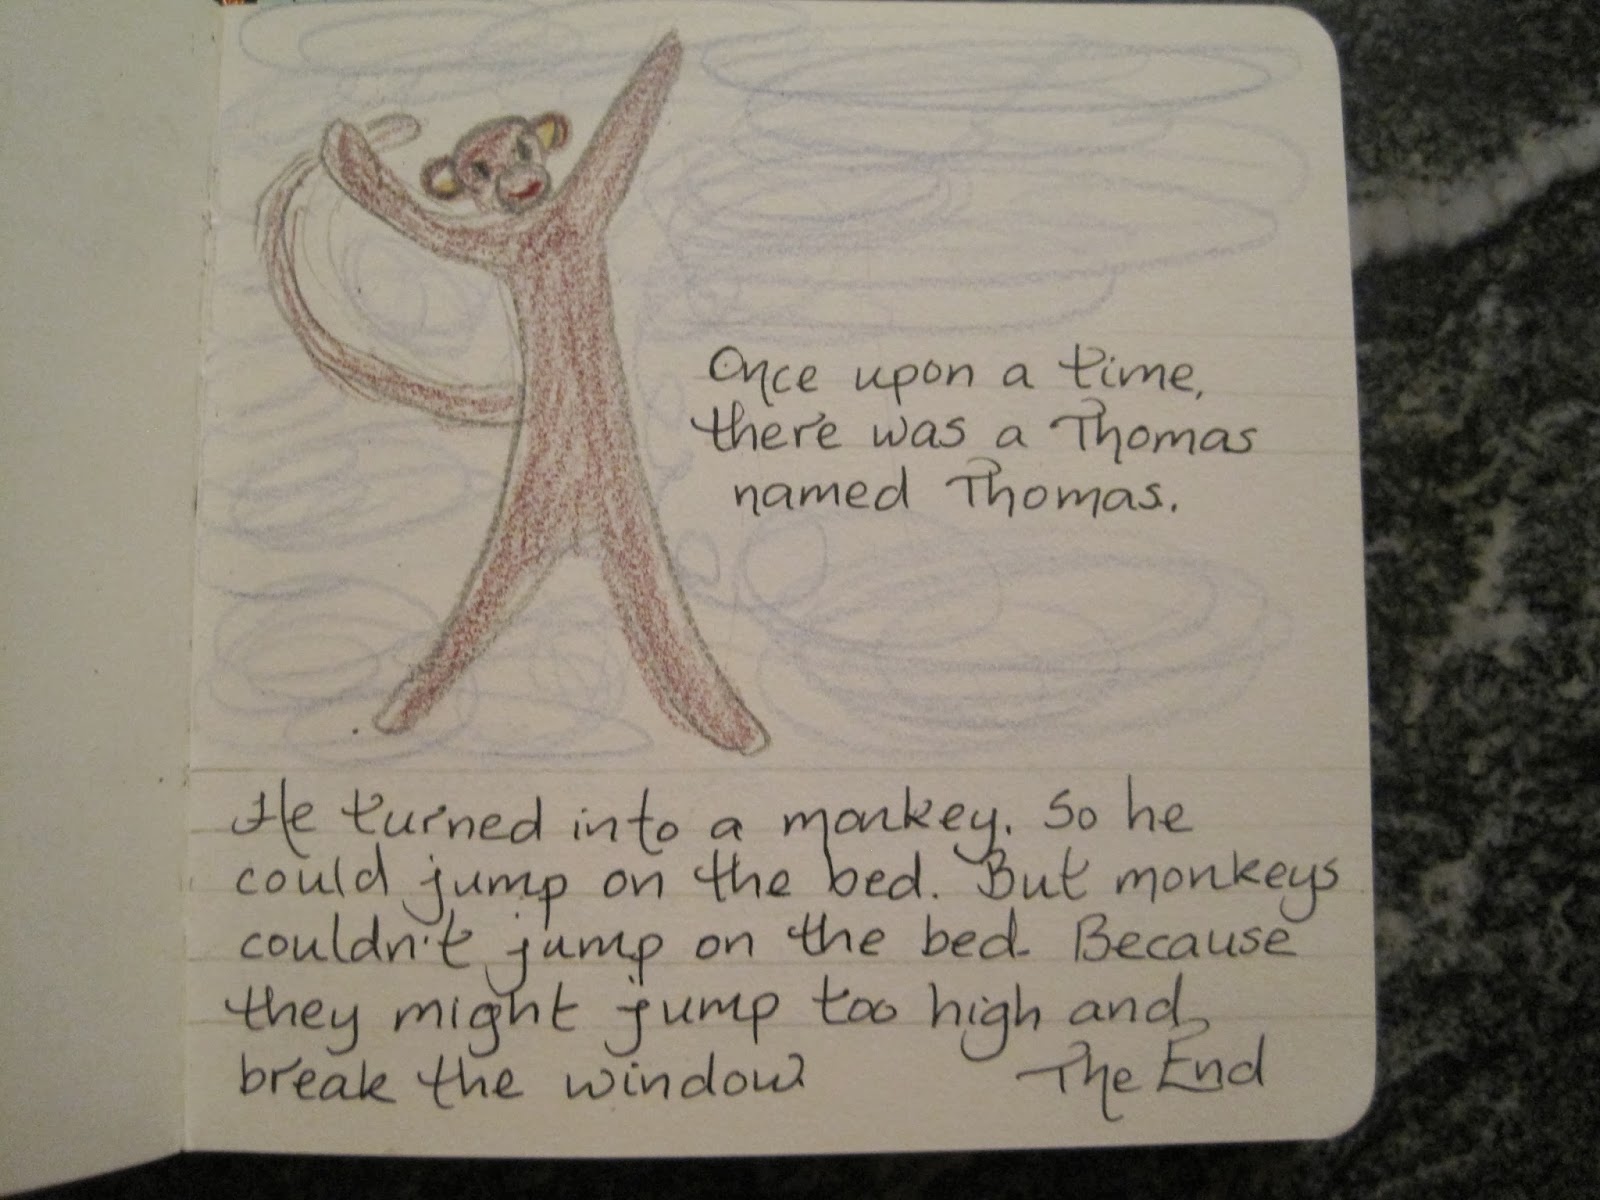 Once upon a time,
there was a Thomas
named Thomas.
He turned into a monkey. So he
could jump on the bed. But monkeys
couldn't jump on the bed. Because
they might jump too high and
break the window
The End